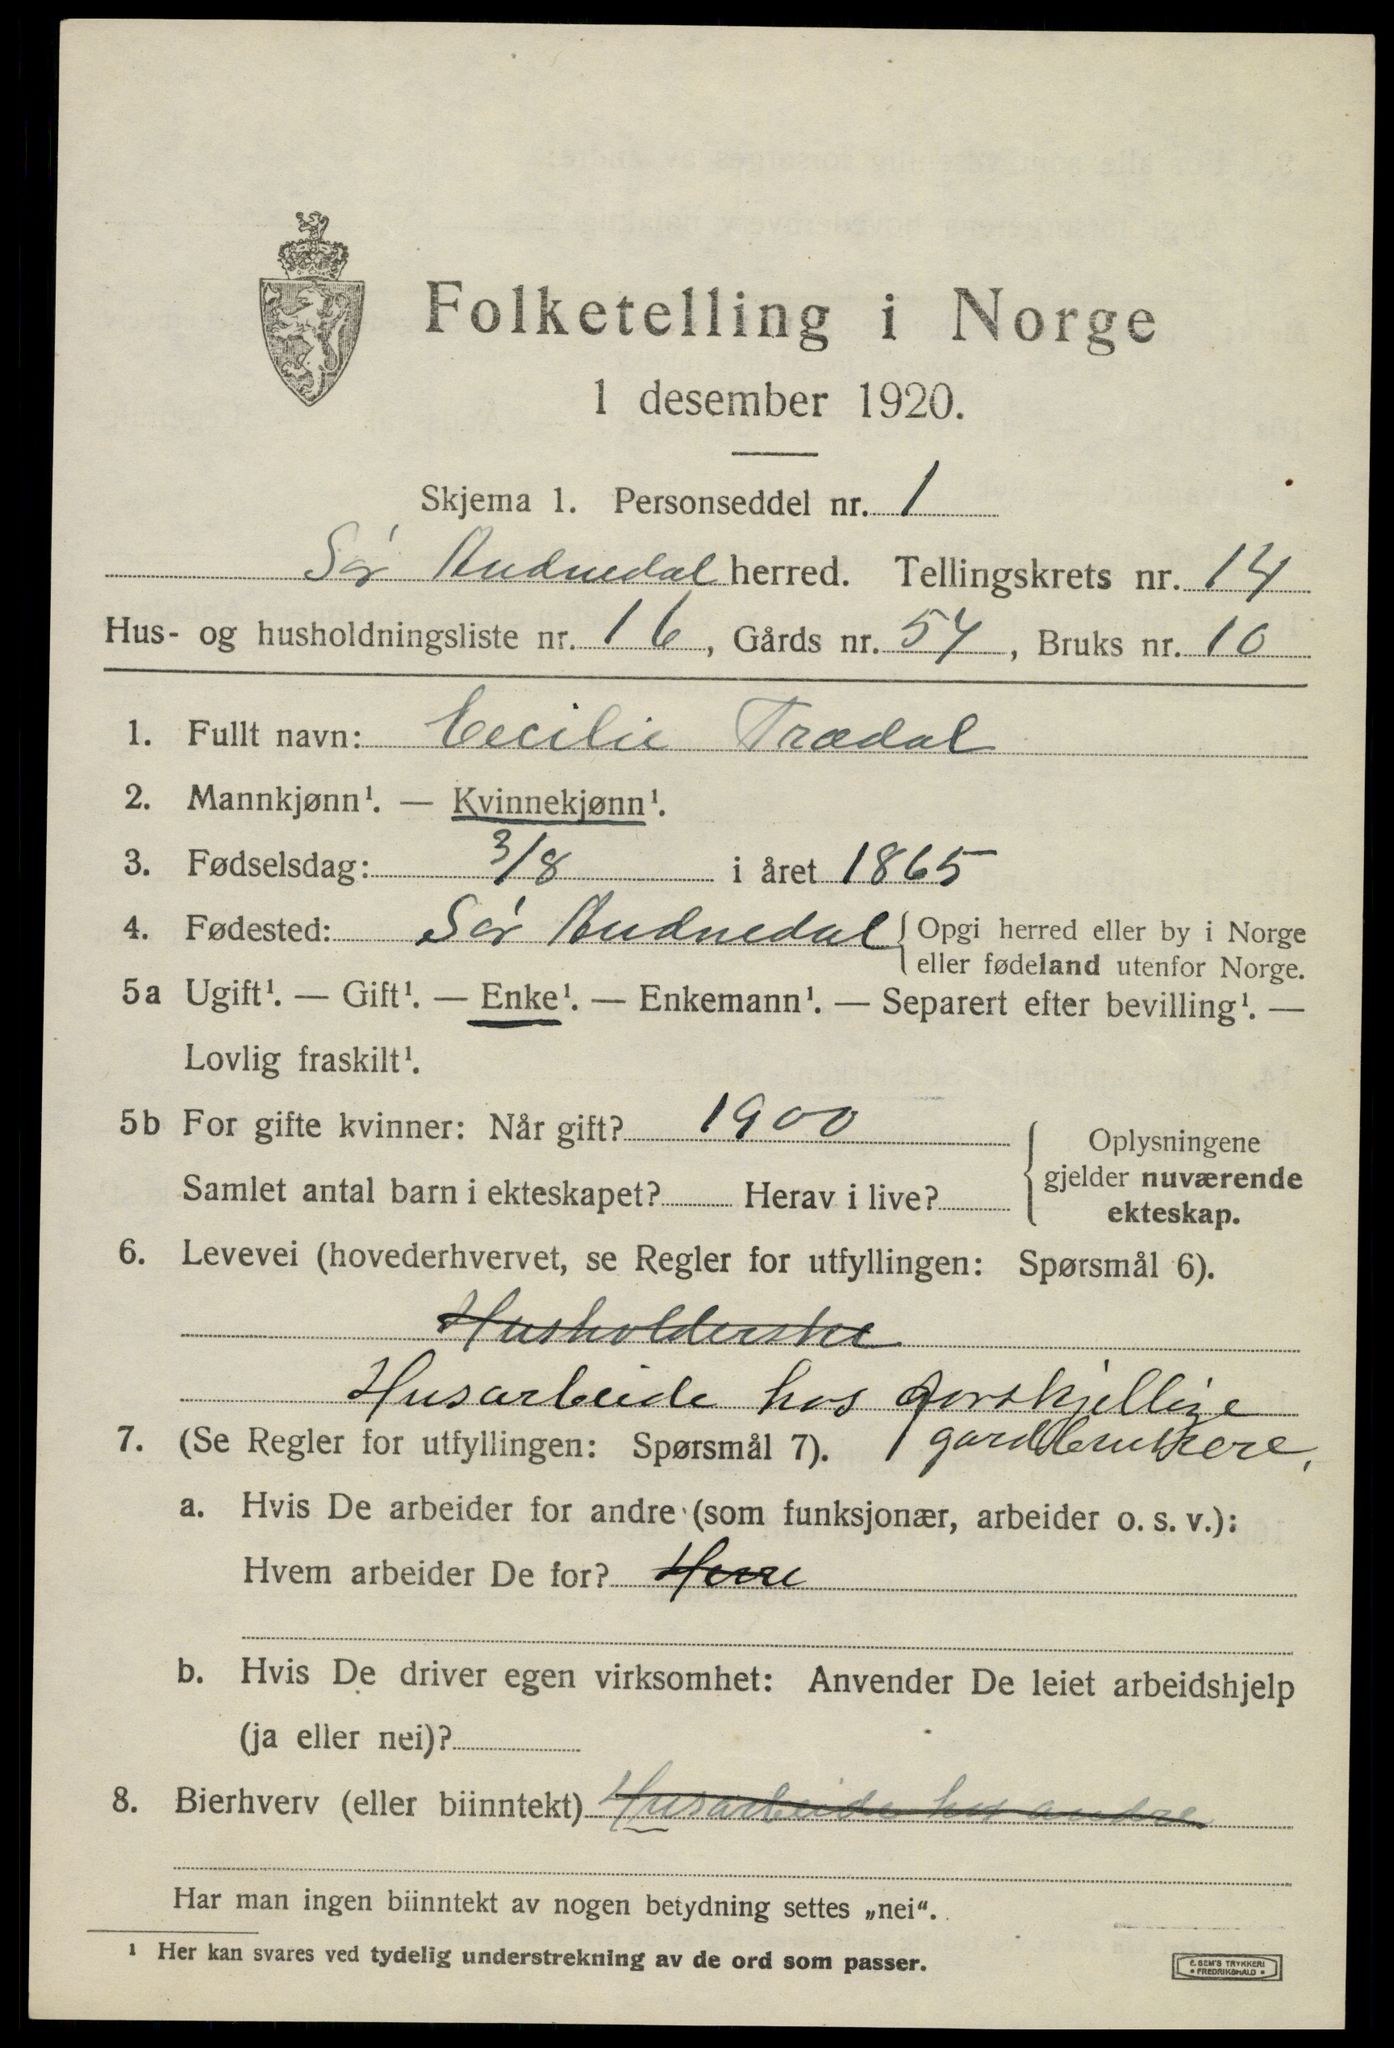 Folketelling i Norge
1 desember 1920.
Skjema 1. Personseddel nr. 1
Sør Audnedal herred. Tellingskrets nr. 14
Hus- og husholdningsliste nr. 16, Gårds nr. 54, Bruks nr. 10
1. Fullt navn: Cecilie Trædal
2. Mannkjønn¹. — Kvinnekjønn¹.
3. Fødselsdag: 3/8 i året 1865
4. Fødested: Sør Audnedal { Opgi herred eller by i Norge
eller fødeland utenfor Norge.
5a Ugift¹. — Gift¹. — Enke¹. — Enkemann¹. — Separert efter bevilling¹. —
Lovlig fraskilt¹.
5b For gifte kvinner: Når gift? 1900
Samlet antal barn i ekteskapet? Herav i live?
{ Oplysningene
gjelder nuværende
ekteskap.
6. Levevei (hovederhvervet, se Regler for utfyllingen: Spørsmål 6).
Husholderske
Husarbeide hos forskjellige
gardbrukere.
7. (Se Regler for utfyllingen: Spørsmål 7).
a. Hvis De arbeider for andre (som funksjonær, arbeider o. s. v.):
Hvem arbeider De for?
b. Hvis De driver egen virksomhet: Anvender De leiet arbeidshjelp
(ja eller nei)?
8. Bierhverv (eller biinntekt) Husarbeide hos andre
Har man ingen biinntekt av nogen betydning settes „nei“.
¹ Her kan svares ved tydelig understrekning av de ord som passer.
E. SEM'S TRYKKERI
• FREDRIKSHALD •